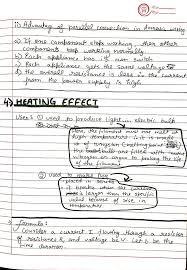 Advantag of parallel connection in domestic wiring
a) If one component stops working, then other
component stop working normally
b) Each appliance has it own switch
c) Each appliance gets the same voltage
d) the overall resistance is less so the current
from the power supply is high
4) HEATING EFFECT
Uses ① used to produce light in electric bulb
Here, the filament must not melt at
high temperature. it is made
of tungsten (melting point
the bulbs are filled with
nitrogen or argon to prolong the life
of the filament
② used to make fuse
placed in series
it breaks when the current
gets larger than the specific
value because of rise in
temperature
formula:
Consider a current I flowing through a resistor
of resistance R, and voltage be V. Let t be the
time duration